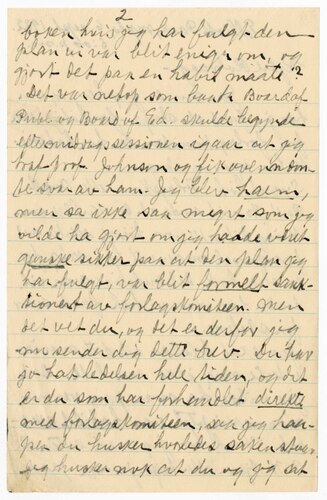 2
boken hvis jeg har fulgt den
plan vi var blit enige om, og
gjort det paa en habil maate?
Det var netop som baade Board of
Publ. og Board of Ed. skulde begynde
eftermiddagssessionen igaar at jeg
traf prof. Johnson og fik ovennævn-
te svar av ham. Jeg blev harm,
men sa ikke saa meget som jeg
vilde ha gjort om jeg hadde været
ganske sikker paa at den plan jeg
har fulgt, var blit formelt sank-
tionert av forlagskomiteen. Men
det vet du, og det er derfor jeg
nu sender dig dette brev. Du har
jo hat ledelsen hele tiden, og det
er du som har forhandlet direkte
med forlagskomiteen, saa jeg haa-
per du husker hvorledes saken staar.
Jeg husker nok at du og jeg sat